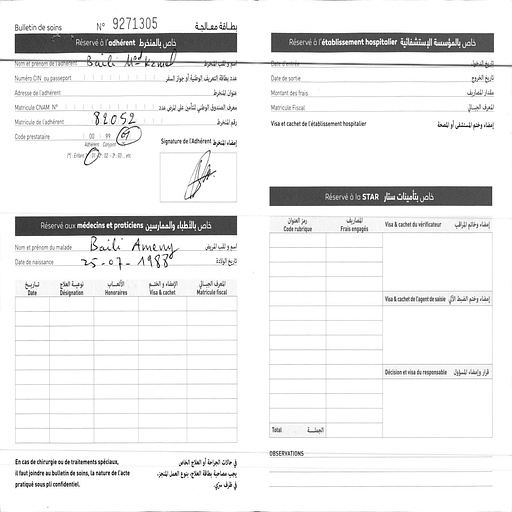 Bulletin de soins N° 9271305 بطاقة معالجة
Réservé à l'adhérent خاص بالمنخرط
Nom et prénom de l'adhérent Baili Med Kamel اسم و لقب المنخرط
Numéro CIN ou passeport عدد بطاقة التعريف الوطنية أو جواز السفر
Adresse de l'adhérent عنوان المنخرط
Matricule CNAM N° معرف الصندوق الوطني للتأمين على المرض عدد
Matricule de l'adhérent 82052 رقم المنخرط
Code prestataire 00 99 01
Adhérent Conjoint (*)
(*) : Enfant : 01 - 02 - 03 ... etc
Signature de l'Adhérent إمضاء المنخرط
Réservé aux médecins et praticiens خاص بالأطباء والممارسين
Nom et prénom du malade Baili Ameny اسم و لقب المريض
Date de naissance 25-07-1988 تاريخ الولادة
تاريخ نوعية العلاج الأتعاب الإمضاء و الختم المعرف الجبائي
Date Désignation Honoraires Visa & cachet Matricule fiscal
En cas de chirurgie ou de traitements spéciaux,
il faut joindre au bulletin de soin, la nature de l'acte
pratiqué sous pli confidentiel.
في حالات الجراحة أو العلاج الخاص
يجب مصاحبة بطاقة العلاج، بنوع العمل المنجز،
في ظرف سري.
Réservé à l'établissement hospitalier خاص بالمؤسسة الإستشفائية
Date d'entrée تاريخ الدخول
Date de sortie تاريخ الخروج
Montant des frais مقدار المصاريف
Matricule Fiscal المعرف الجبائي
Visa et cachet de l'établissement hospitalier إمضاء وختم المستشفى أو المصحة
Réservé à la STAR خاص بتأمينات ستار
رمز العنوان المصاريف
Code rubrique Frais engagés
Visa & cachet du vérificateur إمضاء وخاتم المراقب
Visa & cachet de l'agent de saisie إمضاء وختم الضبط الآلي
Décision et visa du responsable قرار وإمضاء المسؤول
Total الجملة
OBSERVATIONS